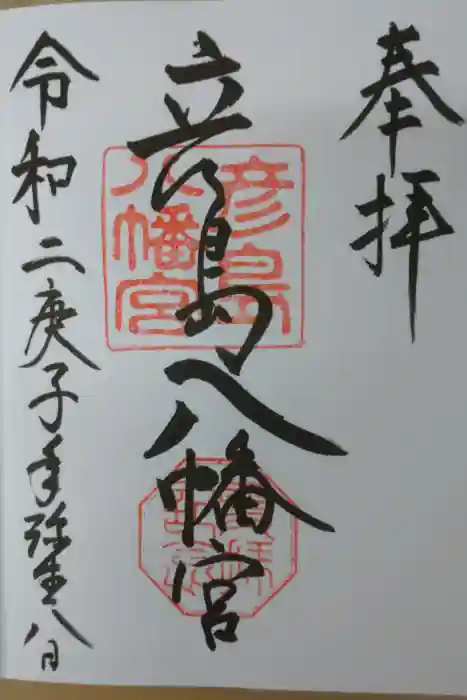 奉拝
彦島八幡宮
彦島
八幡宮
令和二庚子年弥生八日